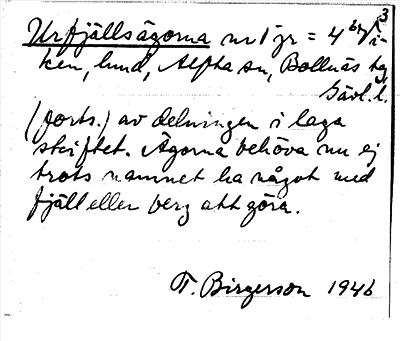 3
Urfjällsägorna nr 1 gr = 4 by Vi-
ken, lund, Alfta sn, Bollnäs tg,
Gävl. l.
(forts.) av delningen i laga
skiftet. Ägorna behöva nu ej
trots namnet ha något med
fjäll eller berg att göra.
T. Birgerson 1946